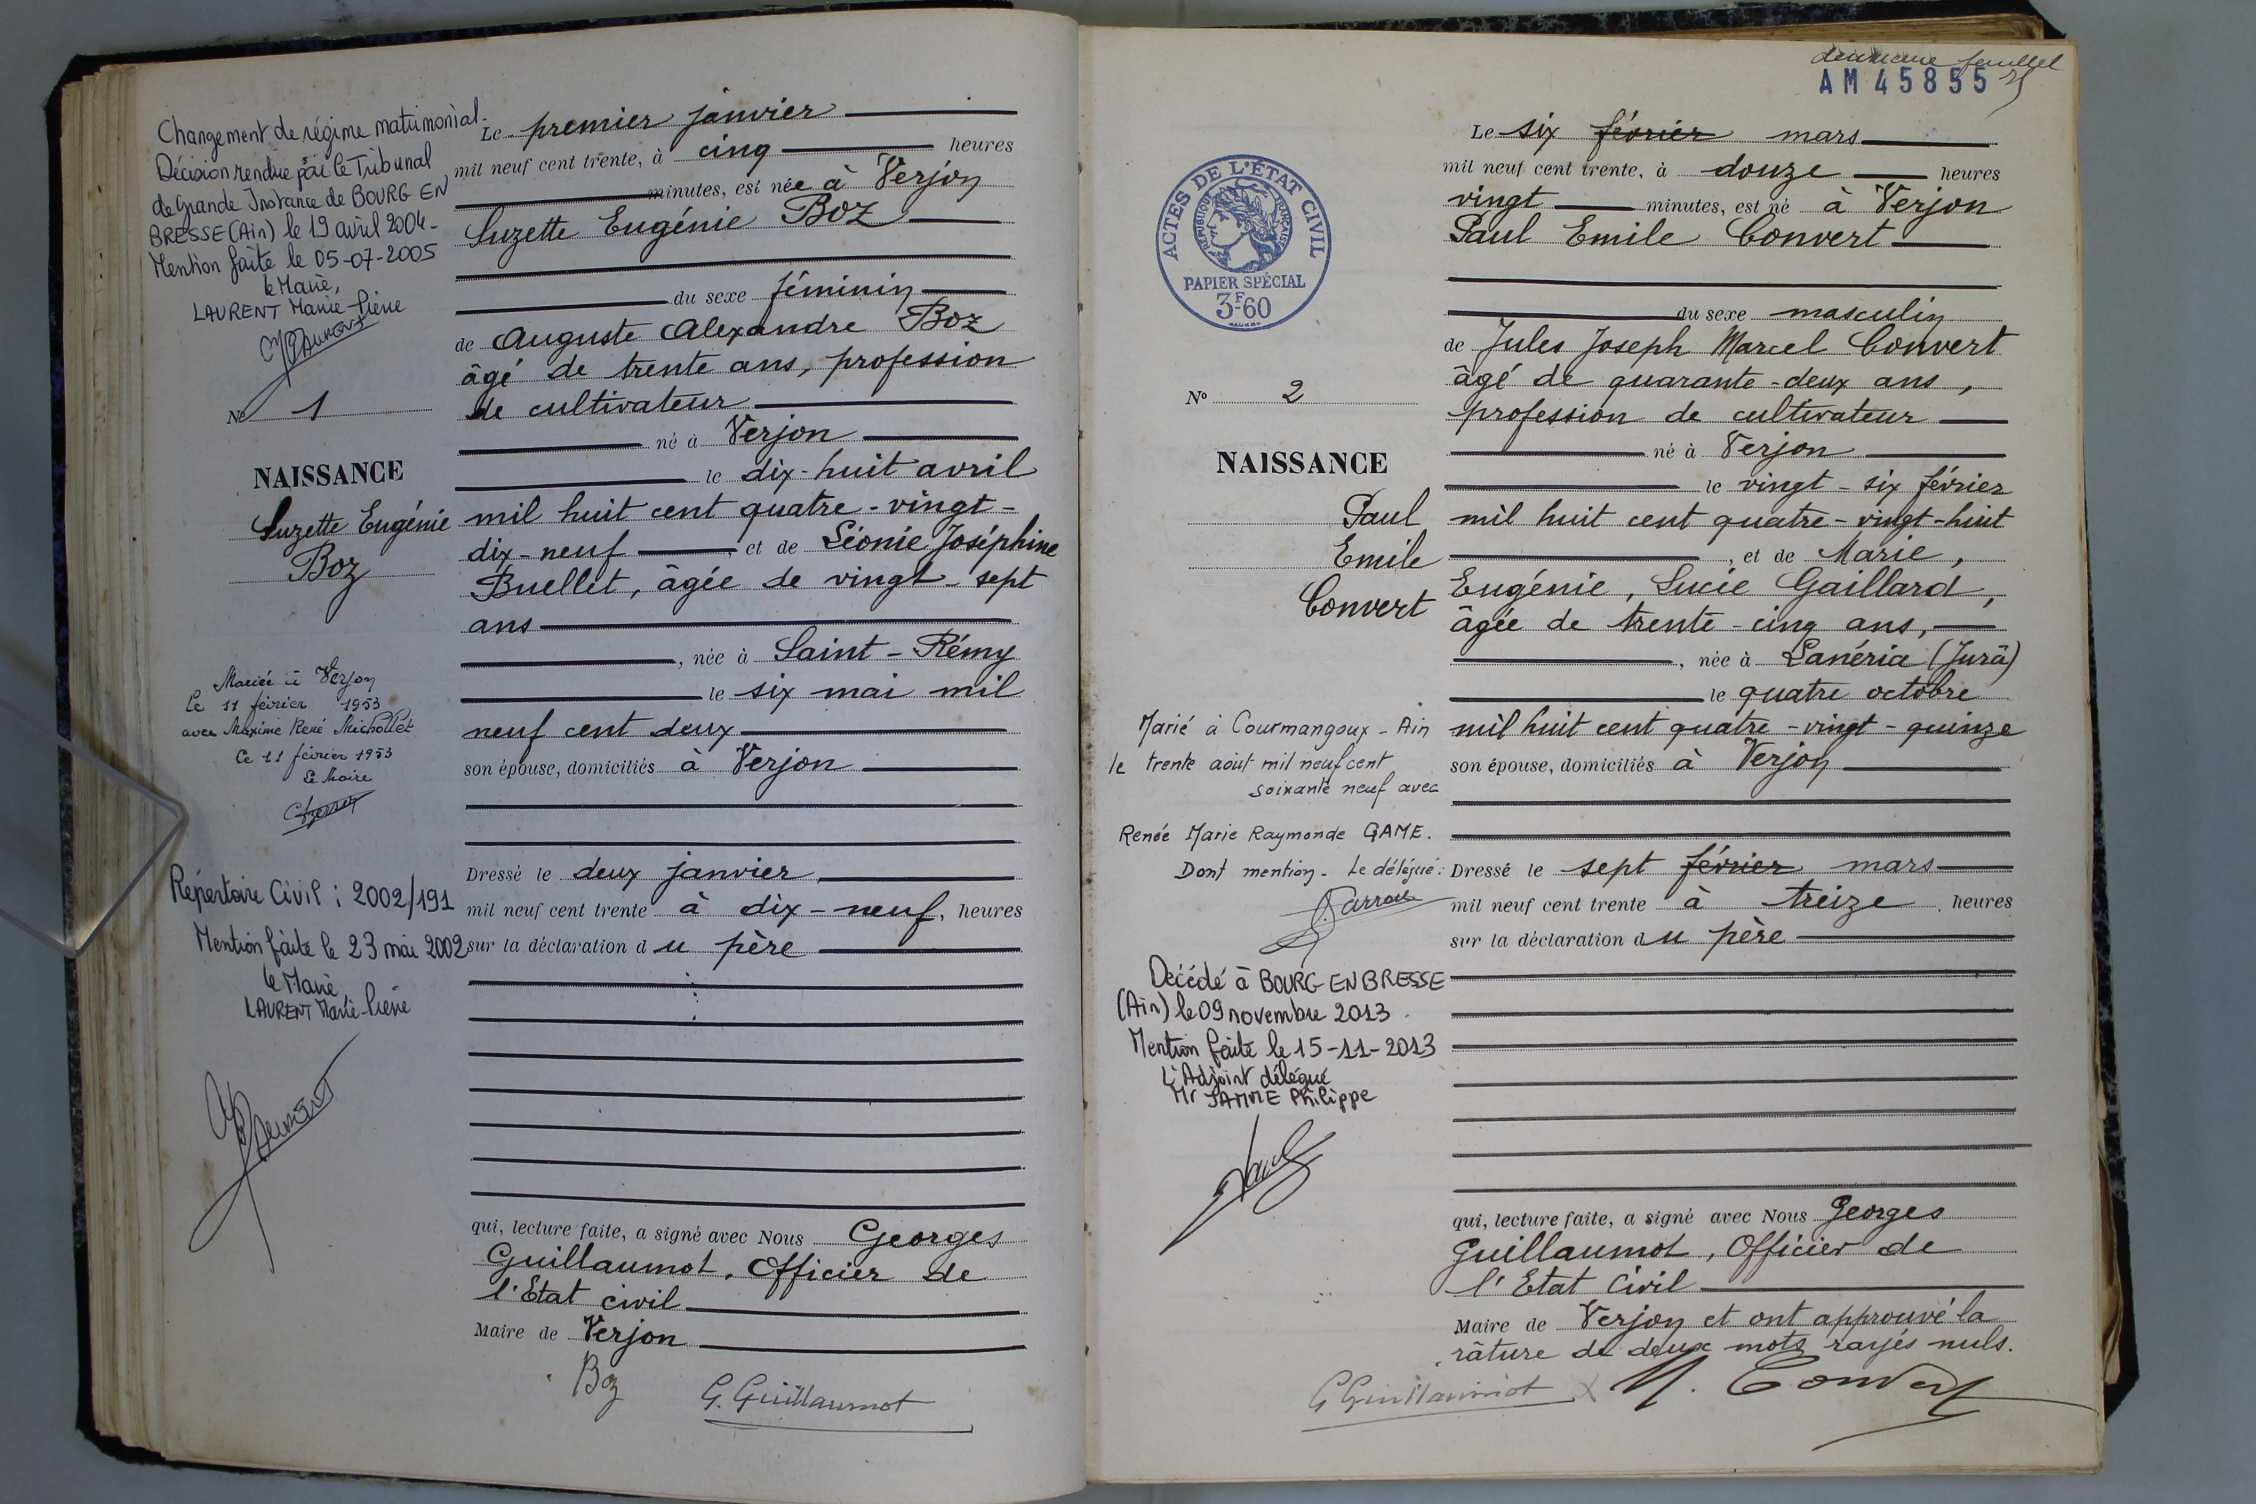 Changement de régime matrimonial.
Décision rendue par le Tribunal
de Grande Instance de BOURG EN
BRESSE (Ain) le 19 avril 2004 -
Mention faite le 05-07-2005
le Maire,
LAURENT Marie-Pierre
No 1
NAISSANCE
Suzette Eugénie
Boz
Mariée à Verjon
le 11 février 1953
avec Maxime René Michollet
Le 11 février 1953
Le Maire
Répertoire Civil : 2002/191
Mention faite le 23 mai 2002
le Maire
LAURENT Marie-Pierre
Le premier janvier
mil neuf cent trente, à cinq heures
minutes, est née à Verjon
Suzette Eugénie Boz
du sexe féminin
de Auguste Alexandre Boz
âgé de trente ans, profession
de cultivateur
né à Verjon
le dix-huit avril
mil huit cent quatre-vingt-
dix-neuf et de Léonie Joséphine
Buellet, âgée de vingt-sept
ans
, née à Saint-Rémy
le six mai mil
neuf cent deux
son épouse, domiciliés à Verjon
Dressé le deux janvier,
mil neuf cent trente à dix-neuf, heures
sur la déclaration du père
qui, lecture faite, a signé avec Nous Georges
Guillaumot, Officier de
l'Etat civil
Maire de Verjon
Boz
G. Guillaumot
deuxième feuillet
AM 45855
ACTES DE L'ÉTAT CIVIL
RÉPUBLIQUE FRANÇAISE
PAPIER SPÉCIAL
3F-60
No 2
NAISSANCE
Paul
Emile
Convert
Marié à Courmangoux - Ain
le trente août mil neuf cent
soixante neuf avec
Renée Marie Raymonde GAME.
Dont mention. Le délégué :
Décédé à BOURG EN BRESSE
(Ain) le 09 novembre 2013.
Mention faite le 15-11-2013
L'Adjoint délégué
Mr JAMME Philippe
Le six février mars
mil neuf cent trente, à douze heures
vingt minutes, est né à Verjon
Paul Emile Convert
du sexe masculin
de Jules Joseph Marcel Convert
âgé de quarante-deux ans,
profession de cultivateur
né à Verjon
le vingt-six février
mil huit cent quatre-vingt-huit
, et de Marie,
Eugénie, Lucie Gaillard,
âgée de trente-cinq ans,
, née à Lanéria (Jura)
le quatre octobre
mil huit cent quatre-vingt-quinze
son épouse, domiciliés à Verjon
Dressé le sept février mars
mil neuf cent trente à treize, heures
sur la déclaration du père
qui, lecture faite, a signé avec Nous Georges
Guillaumot, Officier de
l'Etat Civil
Maire de Verjon et ont approuvé la
râture de deux mots rayés nuls.
G Guillaumot M. Convert